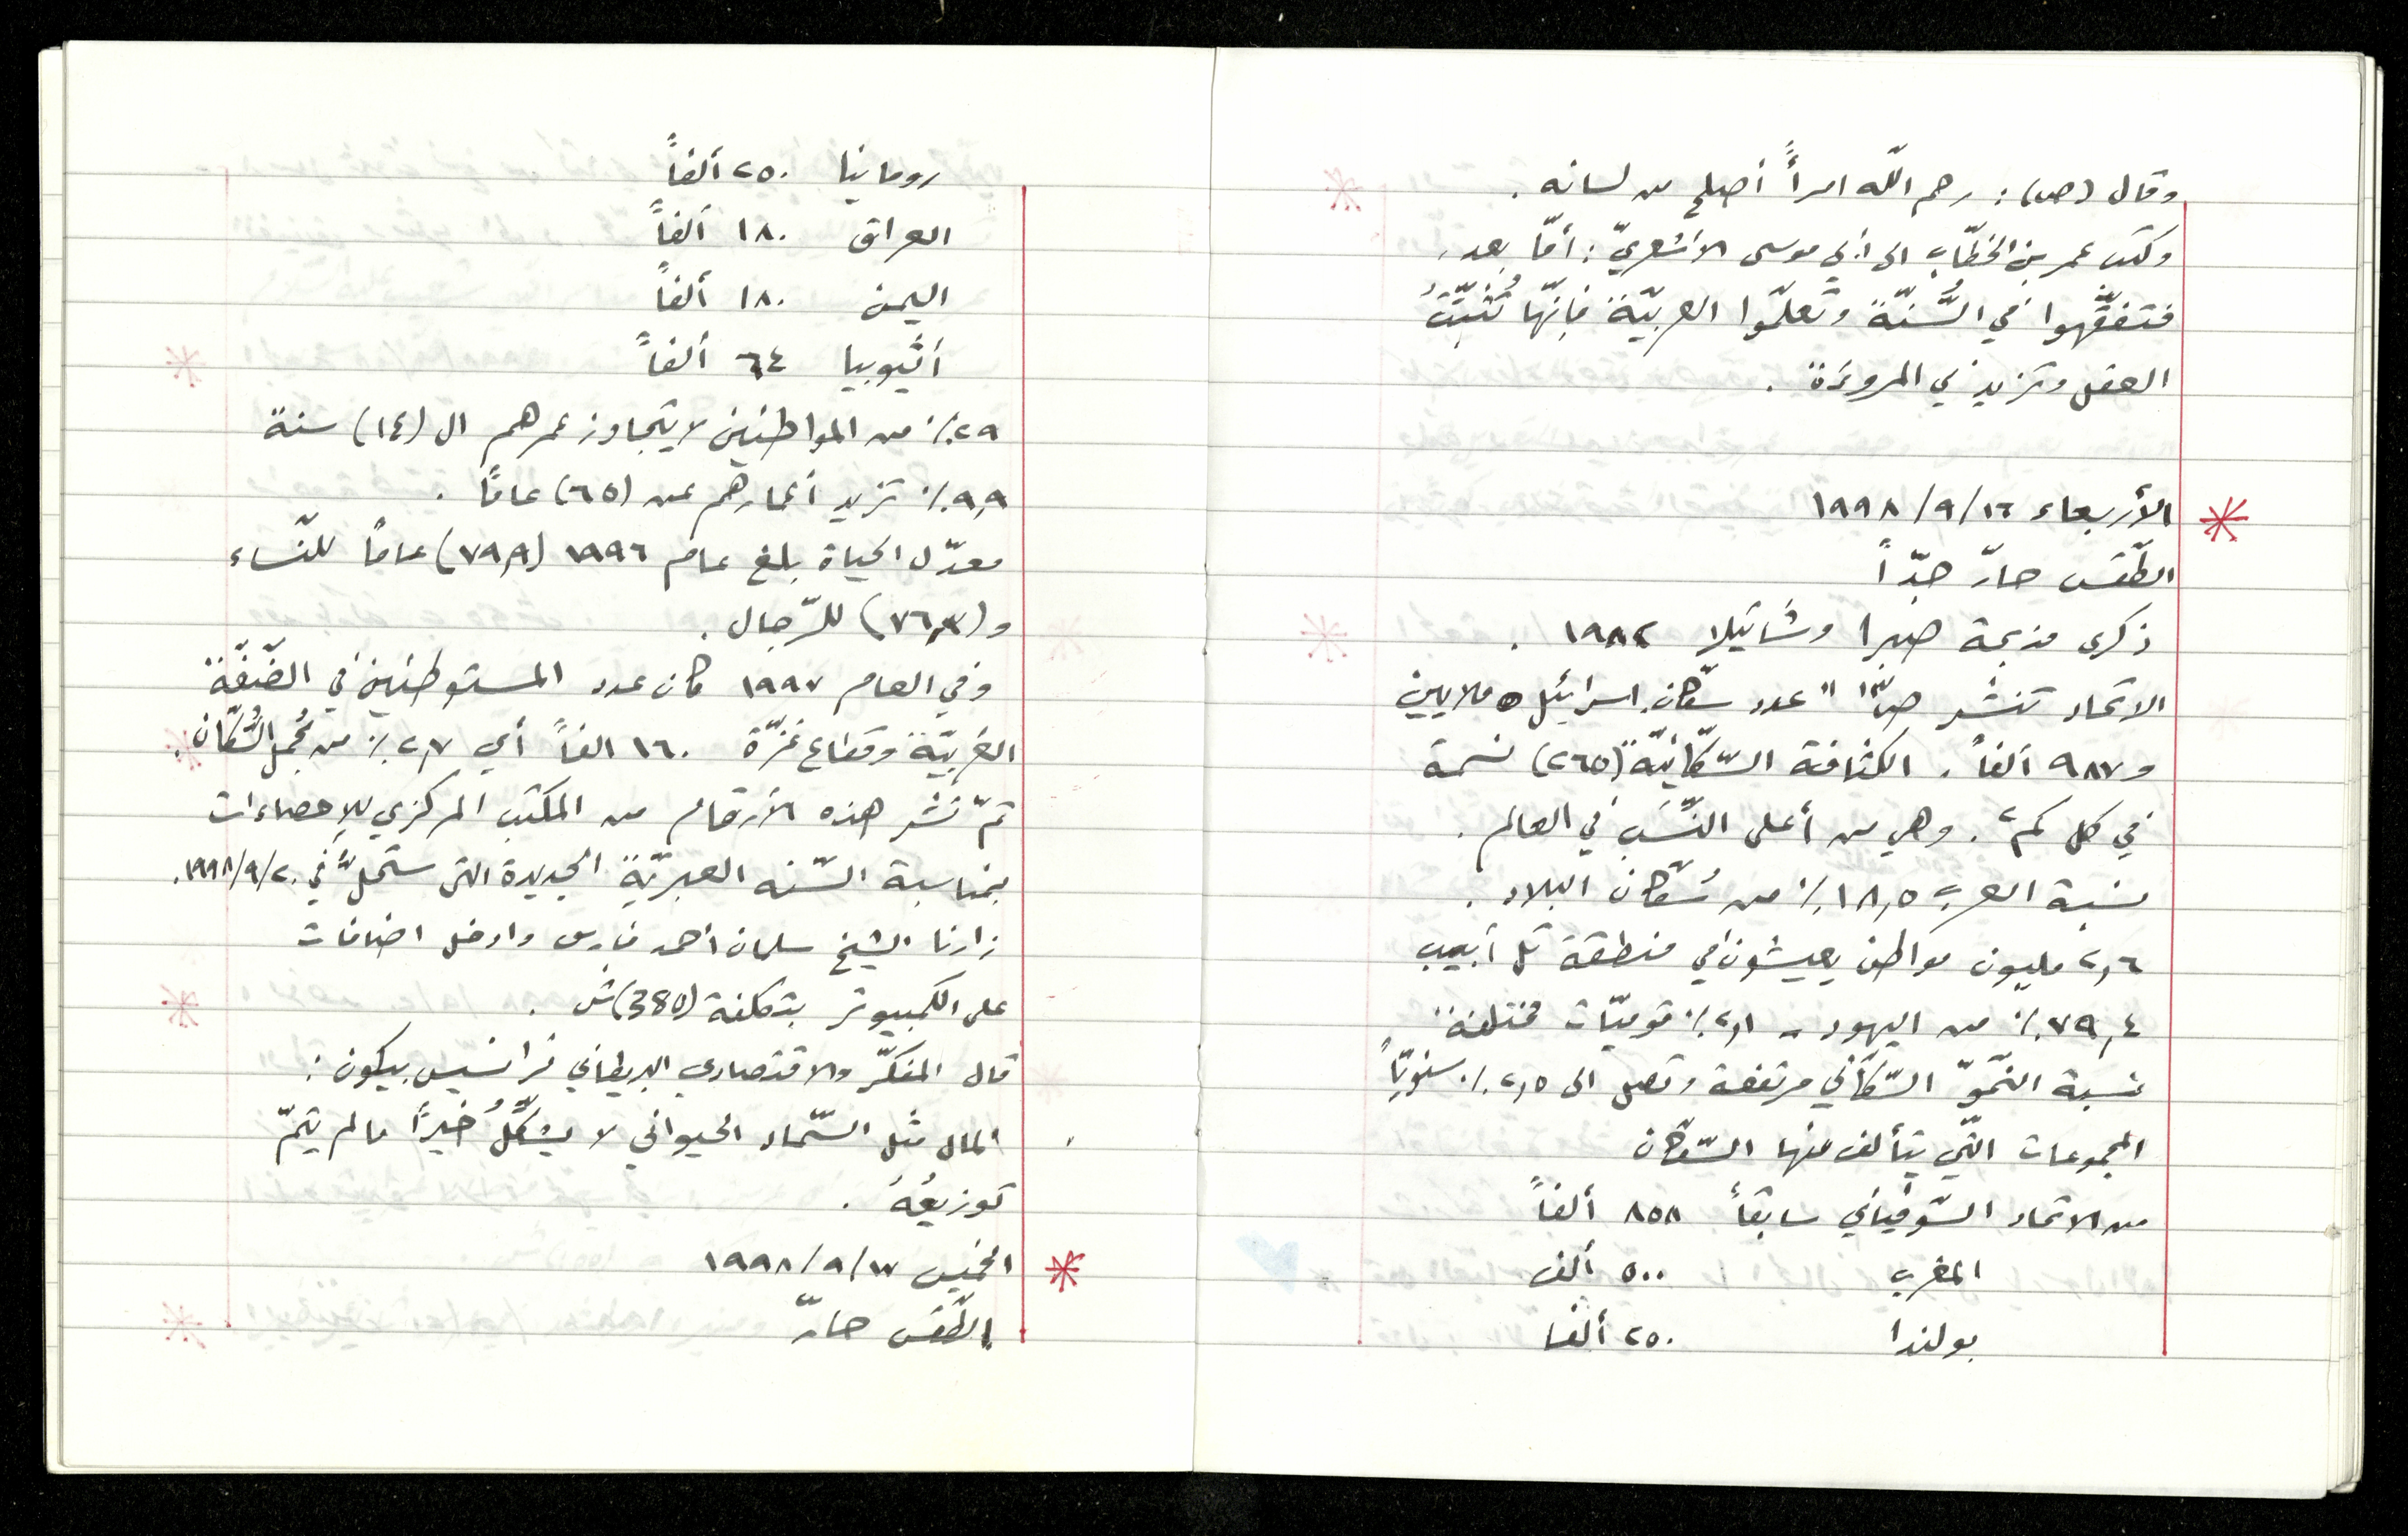 وقال (ص): رحم اللّه امرأً أصلح من لسانه.
وكتب عمر بن الخطّاب الى أبي موسى الأشعريّ: أمّا بعد،
فتفقَّهوا في السُّنّة وتعلّموا العربيّة فإنّها تُثبِّتُ
العقل وتزيد في المروءَة.
* الأربعاء ١٦/٩/١٩٩٨
الطّقس حارّ جدّاً
ذكرى مذبحة صبرا وشاتيلا ١٩٨٢.
الاتحاد تنشر ص١ "عدد سكّان اسرائيل ٥ ملايين
و٩٨٧ ألفاً. الكثافة السّكّانيّة (٢٦٥) نسمة
في كل كم٢. وهي من أعلى النِّسَب في العالم.
نسبة العرب ١٨,٥٪ من سُكّان البلاد.
٢,٦ مليون مواطن يعيشون في منطقة تل أبيب
٧٩,٤٪ من اليهود - ٢,١٪ قوميّات مختلفة
نسبة النّموّ السّكّاني مرتفعة وتصل الى ٢,٥٪ سنويّاً
المجموعات التّي يتألف منها السّكّان
من الاتحاد السّوفياتي سابقاً ٨٥٨ ألفاً
المغرب ٥٠٠ ألف
بولندا ٢٥٠ ألفا
رومانيا ٢٥٠ ألفاً
العراق ١٨٠ ألفاً
اليمن ١٨٠ ألفاً
أثيوبيا ٦٤ ألفاً
٢٩٪ من المواطنين لا يتجاوز عمرهم ال (١٤) سنة
٩,٩٪ تزيد أعمارهم عن (٦٥) عامًا.
معدّل الحياة بلغ عام ١٩٩٦ (٧٩,٩) عاماً للنّساء
و(٧٦,٣) للرّجال.
وفي العام ١٩٩٧ كان عدد المستوطنين في الضّفّة
الغربيّة وقطاع غزّة ١٦٠ الفاً أي ٢,٧٪ من مُجمل السُّكّان.
تمّ نشر هذه الأرقام من المكتب المركزي للإحصاءات
بمناسبة السّنه العبريّة الجديدة التي ستحلُّ في ٢٠/٩/١٩٩٨.
زارنا الشيخ سلمان احمد فارس وادخل اضافات
على الكمبيوتر بتكلفة (380)ش.
قال المفكّر والاقتصادي البريطاني فرانسيس بيكون:
المال مثل السّماد الحيواني لا يشكِّلُ خيراً ما لم يتمّ
توزيعُهُ.
* الخميس ١٧/٩/١٩٩٨
الطّقس حارّ